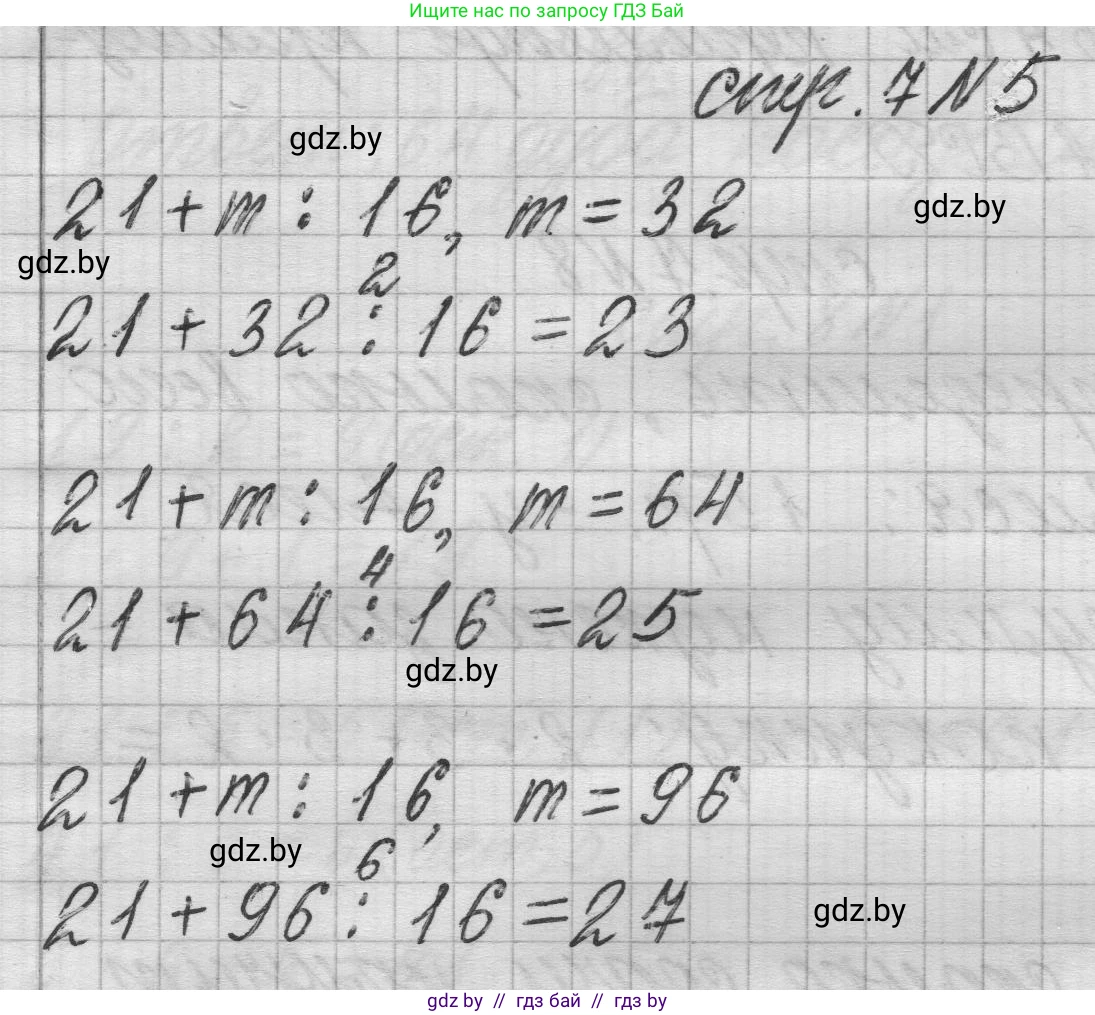 Ищите нас по запросу ГДЗ Бай
стр. 7 N 5
gdz.by
21 + m : 16, m = 32
gdz.by
gdz.by
2
21 + 32 : 16 = 23
21 + m : 16, m = 64
4
21 + 64 : 16 = 25
gdz.by
21 + m : 16, m = 96
gdz.by
6
21 + 96 : 16 = 27
gdz.by
gdz by // гдз бай // гдз by